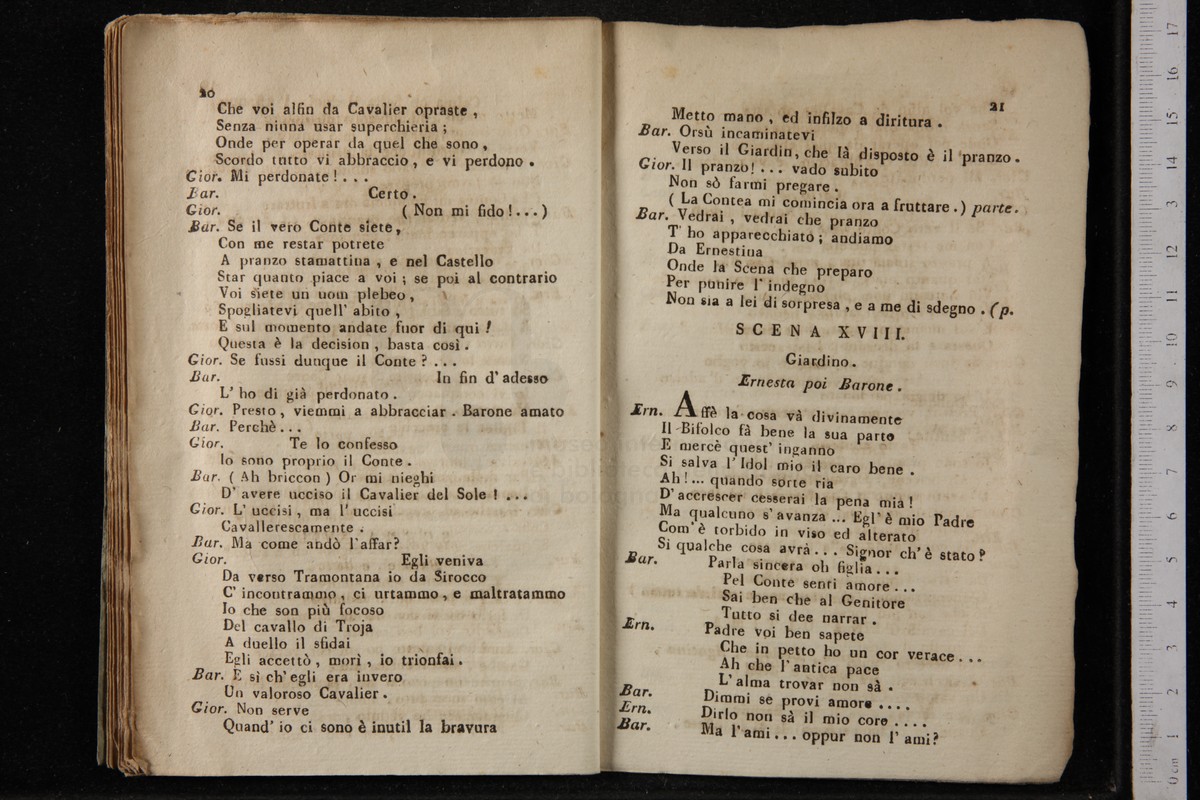 20
Che voi alfin da Cavalier opraste ,
Senza niuna usar superchieria ;
Onde per operar da quel che sono ,
Scordo tutto vi abbraccio , e vi perdono .
Gior. Mi perdonate ! . . .
Bar. Certo .
Gior. ( Non mi fido ! . . . )
Bar. Se il vero Conte siete ,
Con me restar potrete
A pranzo stamattina , e nel Castello
Star quanto piace a voi ; se poi al contrario
Voi siete un uom plebeo ,
Spogliatevi quell' abito ,
E sul momento andate fuor di qui !
Questa è la decision , basta così .
Gior. Se fussi dunque il Conte ? . . .
Bar. In fin d' adesso
L' ho di già perdonato .
Gior. Presto , viemmi a abbracciar . Barone amato
Bar. Perchè . . .
Gior. Te lo confesso
Io sono proprio il Conte .
Bar. ( Ah briccon ) Or mi nieghi
D' avere ucciso il Cavalier del Sole ! . . .
Gior. L' uccisi , ma l' uccisi
Cavallerescamente .
Bar. Ma come andò l'affar?
Gior. Egli veniva
Da verso Tramontana io da Sirocco
C' incontrammo , ci urtammo , e maltratammo
Io che son più focoso
Del cavallo di Troja
A duello il sfidai
Egli accettò , morì , io trionfai .
Bar. E sì ch' egli era invero
Un valoroso Cavalier .
Gior. Non serve
Quand' io ci sono è inutil la bravura
21
Metto mano , ed infilzo a diritura .
Bar. Orsù incaminatevi
Verso il Giardin, che là disposto è il pranzo .
Gior. Il pranzo! . . . vado subito
Non sò farmi pregare .
( La Contea mi comincia ora a fruttare . ) parte.
Bar. Vedrai , vedrai che pranzo
T' ho apparecchiato ; andiamo
Da Ernestina
Onde la Scena che preparo
Per punire l' indegno
Non sia a lei di sorpresa , e a me di sdegno . (p.
SCENA XVIII.
Giardino .
Ernesta poi Barone .
Ern. Affè la cosa và divinamente
Il Bifolco fà bene la sua parte
E mercè quest' inganno
Si salva l' Idol mio il caro bene .
Ah ! ... quando sorte ria
D' accrescer cesserai la pena mia !
Ma qualcuno s' avanza ... Egl' è mio Padre
Com' è torbido in viso ed alterato
Si qualche cosa avrà . . . Signor ch' è stato ?
Bar. Parla sincera oh figlia . . .
Pel Conte senti amore . . .
Sai ben che al Genitore
Tutto si dee narrar .
Ern. Padre voi ben sapete
Che in petto ho un cor verace . . .
Ah che l' antica pace
L' alma trovar non sà .
Bar. Dimmi se provi amore . . . .
Ern. Dirlo non sà il mio core . . . .
Bar. Ma l' ami . . . oppur non l' ami ?